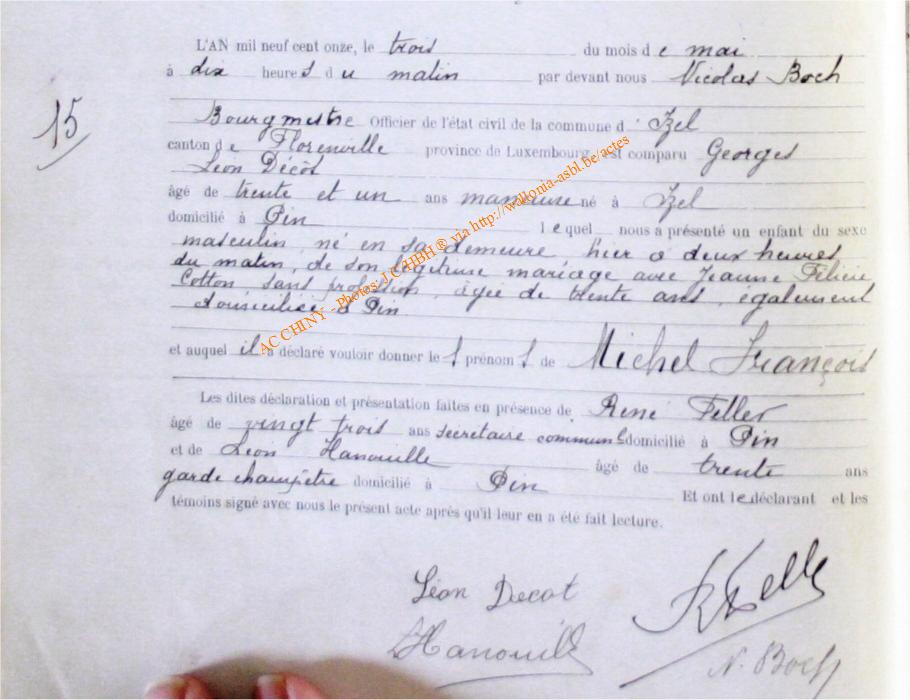 L'AN mil neuf cent onze, le trois du mois de mai
à dix heures du matin par devant nous Nicolas Boch
15
Bourgmestre Officier de l'état civil de la commune d' Izel
canton de Florenville province de Luxembourg, est comparu Georges
Léon Décot
âgé de trente et un ans né à Izel
domicilié à Pin lequel nous a présenté un enfant du sexe
masculin, né en sa demeure hier à deux heures
du matin, de son légitime mariage avec Jeanne Félicie
Cotton, sans profession, âgée de trente ans, également
domiciliée à Pin
AC CHINY - Photos J.C HBH ® via http://wallonia-asbl.be/actes
et auquel il a déclaré vouloir donner les prénoms de Michel François
Les dites déclaration et présentation faites en présence de René Feller
âgé de vingt trois ans secrétaire communal domicilié à Pin
et de Léon Hanouille âgé de trente ans
garde champêtre domicilié à Pin Et ont le déclarant et les
témoins signé avec nous le présent acte après qu'il leur en a été fait lecture.
Léon Decot
RFelle
LHanouill
N. Boch